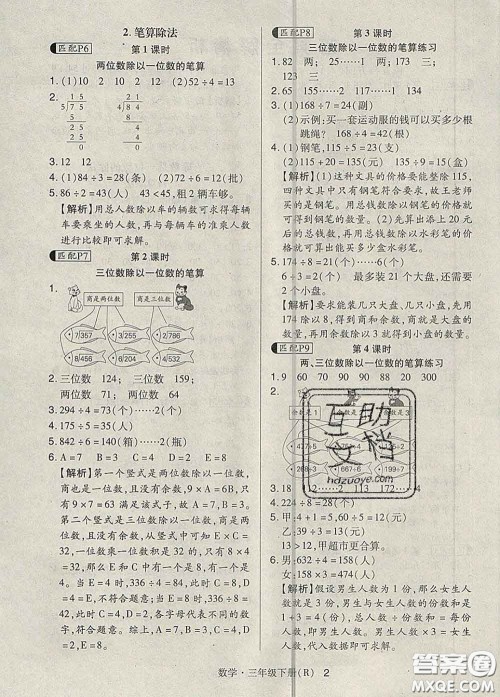 2. 笔算除法
匹配P6 第1课时
两位数除以一位数的笔算
1. (1)10 2 10 12 (2)52÷4=13
2.
15
5)75
5
25
25
0
21
4)84
8
4
4
0
3. 12 12
4. (1)84÷3=28(条) (2)72÷6=12(批)
5. 86÷2=43(人) 43<45,租2辆车够。
【解析】用总人数除以车的辆数可求得每辆
车要乘坐的人数,再与每辆车的准乘人数
进行比较即可求解。
匹配P7 第2课时
三位数除以一位数的笔算
1.
商是两位数 商是三位数
7/357 3/315 4/332
8/456 6/822 9/450
2. 三位数 124; 三位数 159;
两位数 71; 两位数 64
3. 294÷4=73(个)……2(个)
4. 175÷5=35(个)
5. 842÷6=140(箱)……2(瓶)
【解析】第一个竖式是两位数除以一位数,
商也是一位数,且没有余数,9×A=6B,只有
9×7=63满足该式子,故A=7,B=3。
第二个竖式是三位数除以一位数,商是两位数,
且没有余数,从竖式中可知E×C=C,
E×D=32,一位数乘一位数积是32的,只有
4×8=32,一种情况是C=4,D=8,E=4,
则336÷4=84,此时C=8,D=4=E,不符合
题意;另一种情况是C=4,D=4,
E=8,则336÷8=42,此时C=4,
D=2,符合题意,各字母代表不同的数字,
符合题意。综上,A=7,B=3,C=4,
D=2,E=8。
匹配P8 第3课时
三位数除以一位数的笔算练习
1. 82 两; 25……1 两; 173 三;
123 三
3. (1)168÷7=24(副)
(2)示例:买一套运动服的钱可以买多少根
跳绳? 168÷4=42(根)
4. (1)钢笔,115÷5=23(支)
(2)115+20=135(元) 135÷9=15(盒)
【解析】(1)这种文具的价格要能整除115,
四种文具中只有钢笔符合要求,故王老师
买的是钢笔。用总价钱数除以钢笔的价格
就可得到钢笔的数量。(2)求出添上20元
后的总钱数,用总钱数除以水彩笔的价格
就可得到王老师最多能买多少盒水彩笔。
5. 174÷8=21(个)……6(个)
6÷3=2(个) 最多装21个大盘,还需要
2个小盘。
【解析】要求能装几只大盘,几只小盘,用苹
果的总数除以8,得到的商即是大盘的数
量,余数除以3就得到小盘的个数。
匹配P9 第4课时
两、三位数除以一位数的笔算练习
1. 9 60 70 90 20 200 80 100
2.
余数是1 余数是3
477÷5 463÷7
268÷3 667÷6 199÷7
3. 18 17……2 113 117……4
4. 224÷8=28(个)
5. 甲:4+1=5(个) 60÷5=12(元)
乙:5+1=6(个) 78÷6=13(元)
13>12,甲超市更合算。
6. 男:632÷4=158(人)
女:158×3=474(人)
【解析】假设男生人数为1份,那么女生人
数就是3份,男生与女生人数的份数和是
1+3=4(份)。男生人数=男生和女生人
数的和÷份数和,女生人数=男生人数×3,
代入数据即可求解。
互助文档
hdzuoye.com
数学·三年级下册(R) 2
答案圈
MXQE.COM